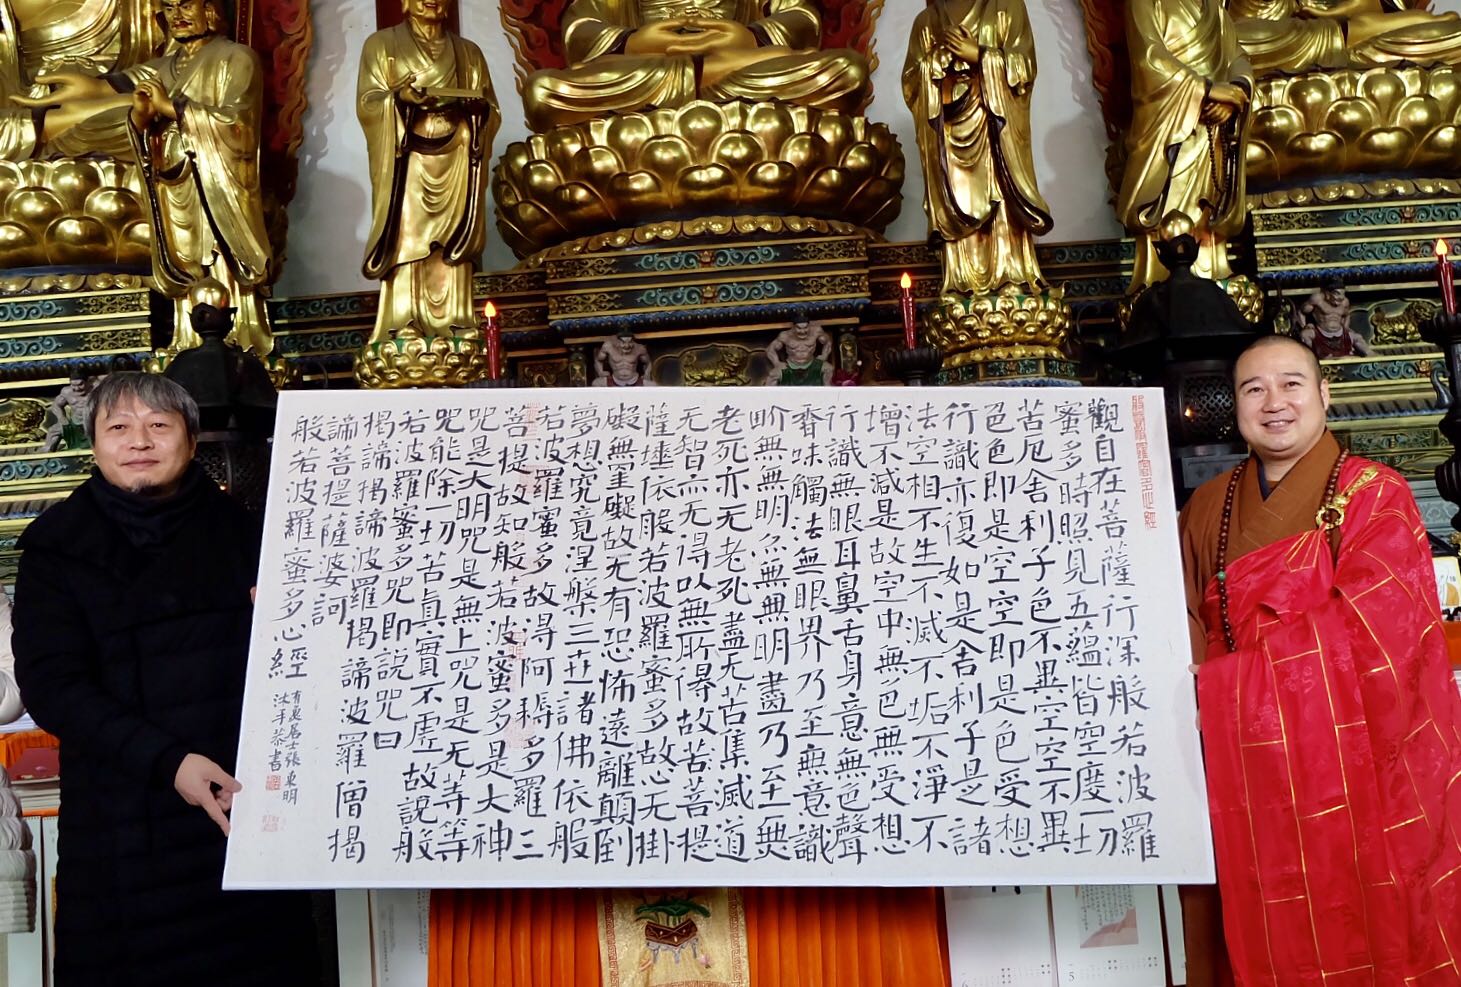 般若波羅蜜多心經
觀自在菩薩行深般若波羅
蜜多時照見五蘊皆空度一切
苦厄舍利子色不異空空不異
色色即是空空即是色受想
行識亦復如是舍利子是諸
法空相不生不滅不垢不淨不
增不減是故空中無色無受想
行識無眼耳鼻舌身意無色聲
香味觸法無眼界乃至無意識
界無無明亦無無明盡乃至無
老死亦无老死盡无苦集滅道
无智亦无得以無所得故苦菩提
薩埵依般若波羅蜜多故心无掛
礙無罣礙故无有恐怖遠離顛倒
夢想究竟涅槃三世諸佛依般
若波羅蜜多故得阿耨多羅三
菩提故知般若波蜜多是大神
咒是大明咒是無上咒是无等等
咒能除一切苦真實不虛故說般
若波羅蜜多咒即說咒曰
揭諦揭諦波羅揭諦波羅僧揭
諦菩提薩婆訶
般若波羅蜜多心經
居士張東明
沐手恭書